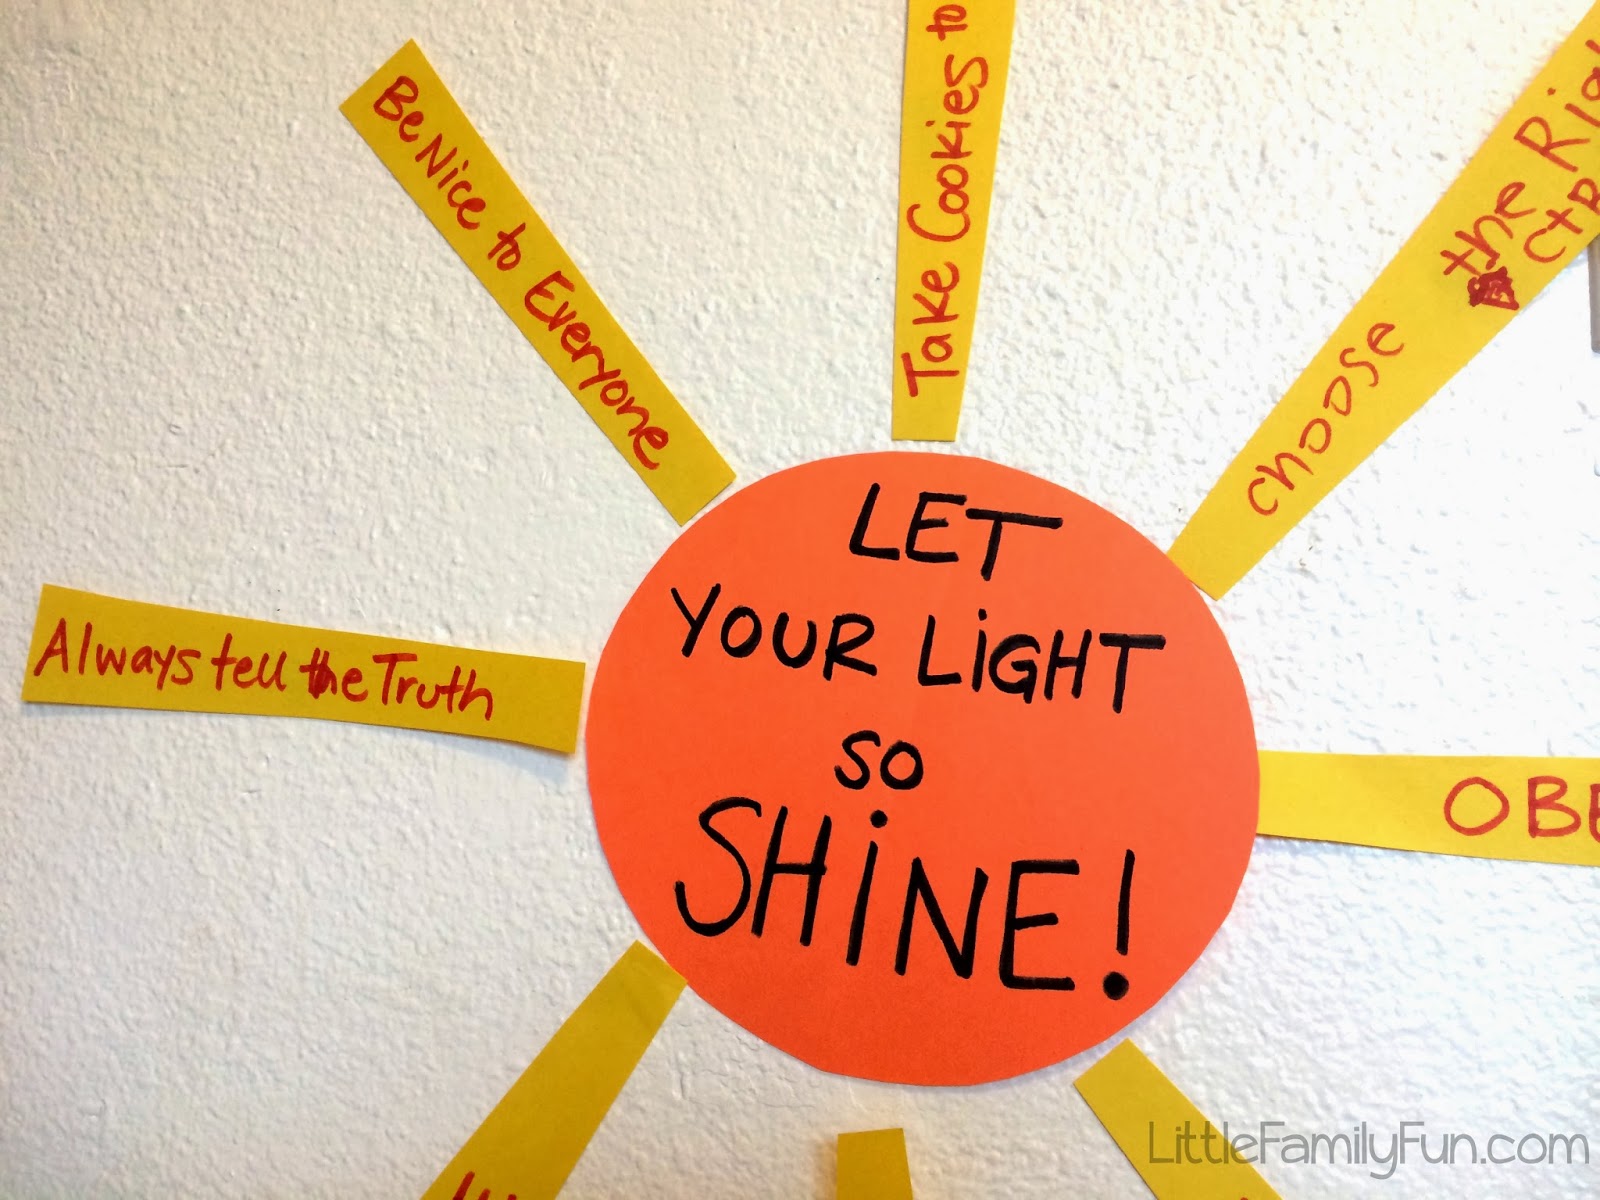 Be Nice to Everyone
Take Cookies to
choose the
Always tell the Truth
LET
YOUR LiGHT
so
SHiNE!
LittleFamilyFun.com